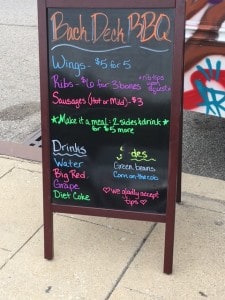 Back Deck BBQ
Wings - $5 for 5
Ribs - $6 for 3 bones
+rib tips
Sausages (Hot or Mild) - $3
Make it a meal: 2 sides & drink
for $5 more
Drinks
Water
Big Red
Grape
Diet Coke
des
Green beans
Corn on the cob
we gladly accept
tips